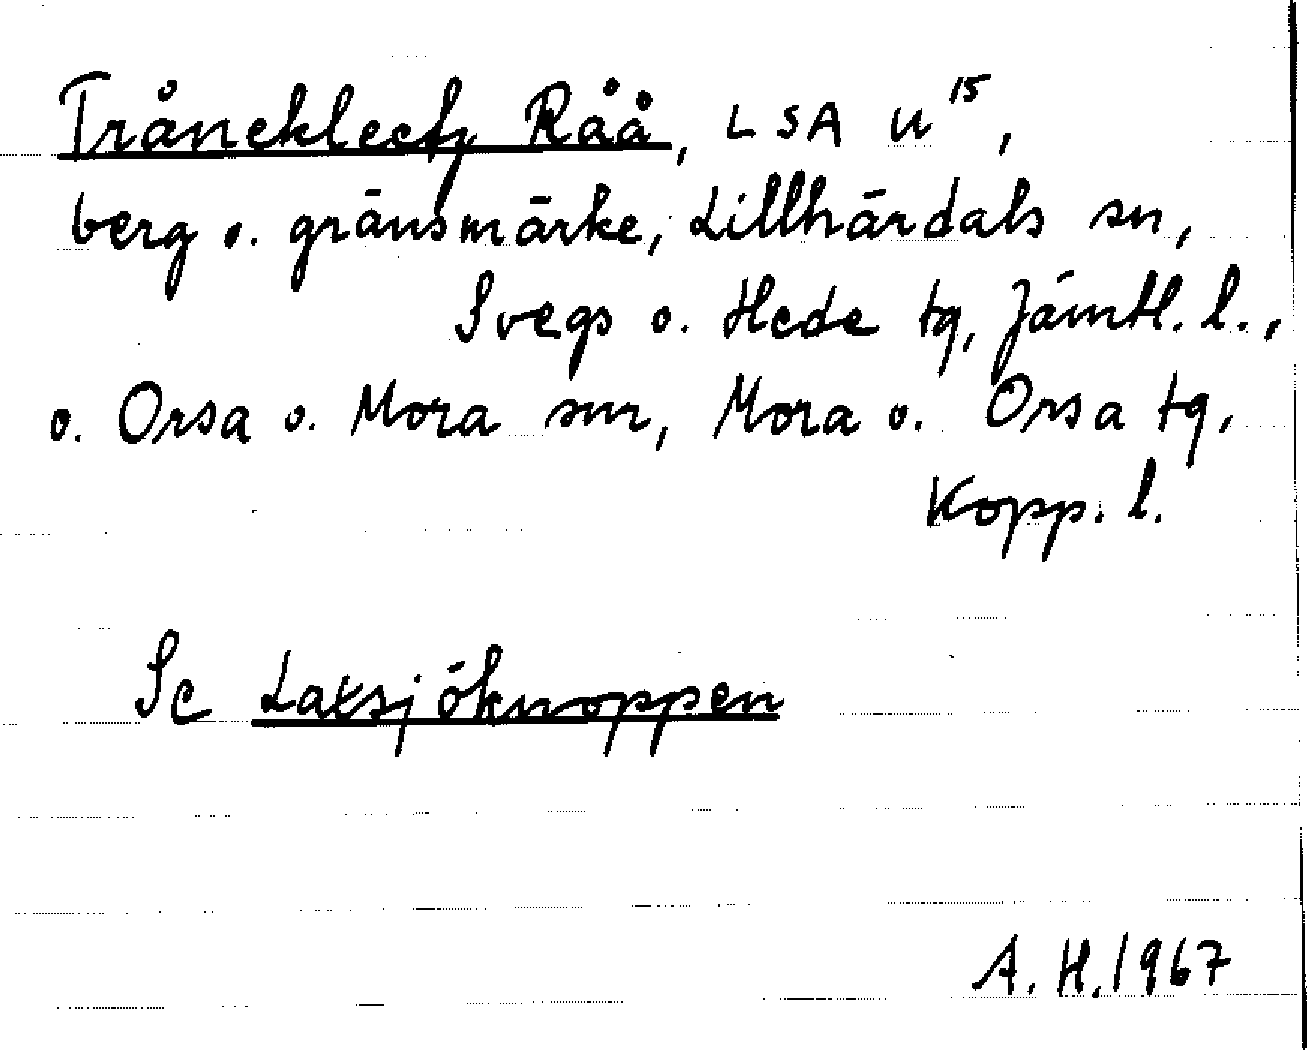 Tråneklectz Råå, LSA U 15,
berg o. gränsmärke, Lillhärdals sn,
Svegs o. Hede tg, Jämtl. l.,
o. Orsa o. Mora snr, Mora o. Orsa tg,
Kopp. l.
Se Laxsjöknoppen
A. H. 1967